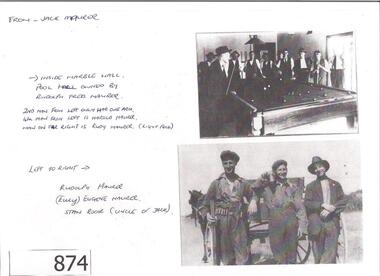 FROM - JACK MAURER
→ INSIDE MARBLE HALL.
POOL HALL OWNED BY
RUDOLPH FRED MAURER.
2ND MAN FROM LEFT ONLY HAD ONE ARM.
MAN FROM LEFT IS HAROLD MAURER.
MAN ON FAR RIGHT IS RUDY MAURER.
LEFT TO RIGHT →
RUDOLPH MAURER
(RUDY) EUGENE MAURER.
STAN (UNCLE OF JACK).
874